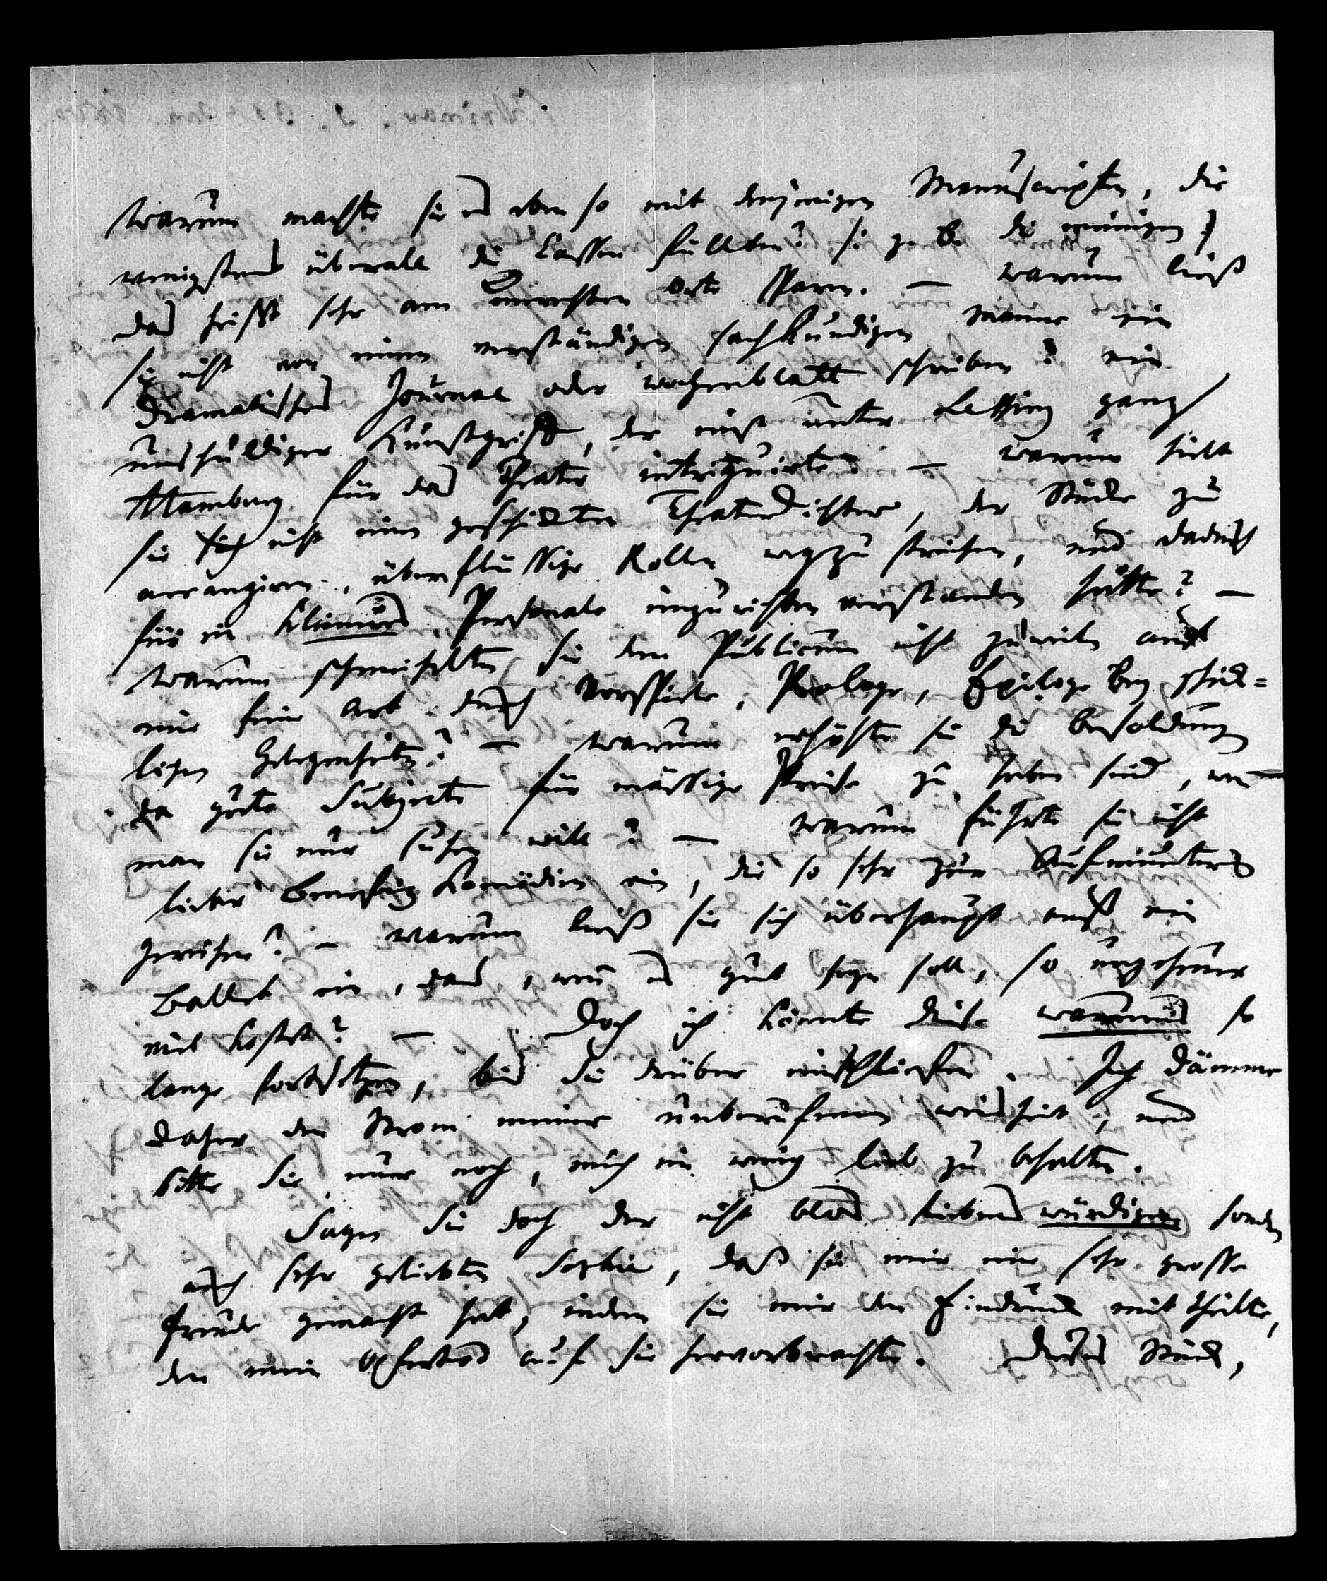 Warum machte sie es eben so mit denjenigen Manuscripten, die
wenigstens überall die Kassen füllten? sie z. B. die meinigen)
das heißt sehr am unrechten Orte sparen. — Warum ließ
sie nicht von einem verständigen sachkundigen Manne ein
dramatisches Journal oder Wochenblatt schreiben? ein
unschuldiger Kunstgriff, der einst unter Lessing ganz
Hamburg für das Theater intriguirte — Warum hielt
sie sich nicht einen geschickten Theaterdichter, der Stücke zu
arrangiren, überflüssige Rollen wegzustreichen, und dadurch
für ein kleineres Personale einzurichten verstanden hätte? —
Warum schmeichelten sie dem Publicum nicht zuweilen auf
eine feine Art durch Vorspiele, Prologe, Epiloge bey schick=
lichen Gelegenheiten? — Warum erhöhte sie die Besoldung
da gute Subjecte für mässige Preise zu haben sind, wenn
man sie nur suchen will? — Warum führte sie nicht
lieber Benefiz Komödien ein, die so sehr zur Aufmunterung
gereichen? — Warum ließ sie sich überhaupt auf ein
Ballet ein, das, wenn es gut seyn soll, so ungeheuer
viel kostet? — Doch ich könnte diese Warums so
lange fortsetzen, bis Sie darüber einschliefen. Ich dämme
daher den Strom meiner unberufenen Weisheit, und
bitte Sie nur noch, mich ein wenig lieb zu behalten.
Sagen Sie doch der nicht blos liebenswürdigen sondern
auch sehr geliebten Sophie, daß sie mir eine sehr grosse
Freude gemacht hat, indem sie mir den Eindruck mittheilte,
den mein Opfertod auf sie hervorbrachte. Dieses Stück,